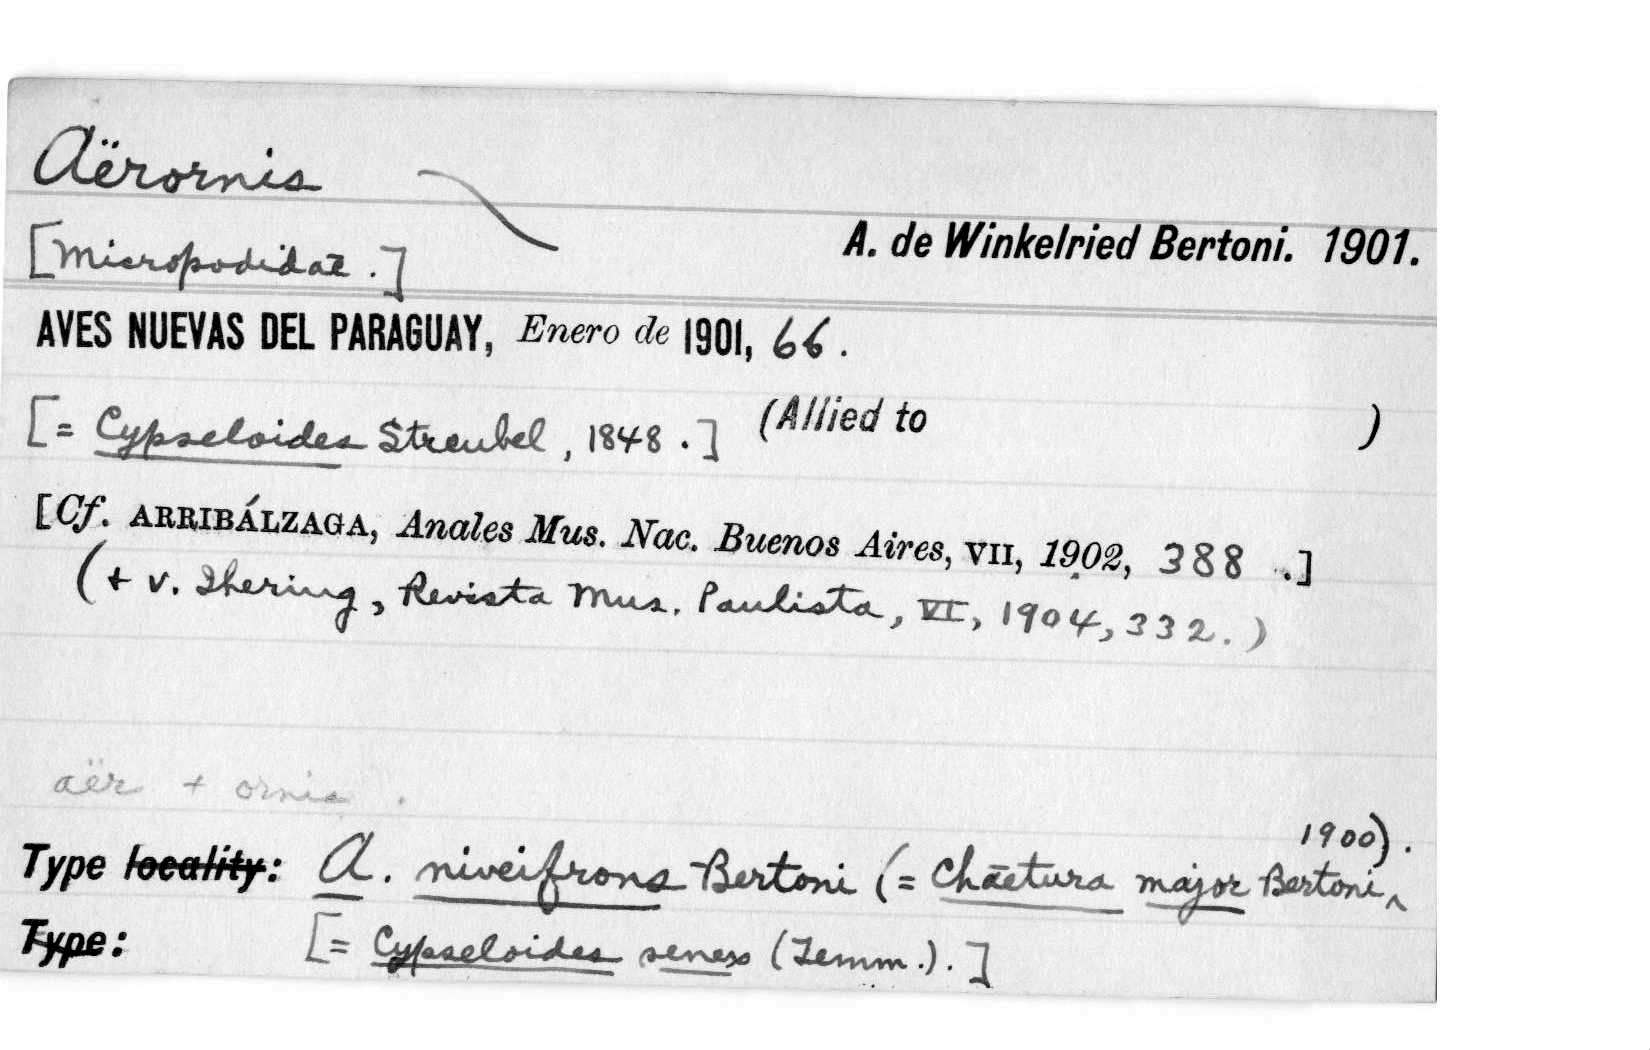 Aërornis
[Micropodidae.]
A. de Winkelried Bertoni. 1901.
AVES NUEVAS DEL PARAGUAY, Enero de 1901, 66.
[= Cypseloides Streubel, 1848.] (Allied to )
[Cf. ARRIBÁLZAGA, Anales Mus. Nac. Buenos Aires, VII, 1902, 388.]
(+ v. Ihering, Revista Mus. Paulista, VI, 1904, 332.)
aër + ornis.
Type locality: A. niveifrons Bertoni (= Chaetura major Bertoni, 1900).
Type: [= Cypseloides senex (Temm.).]